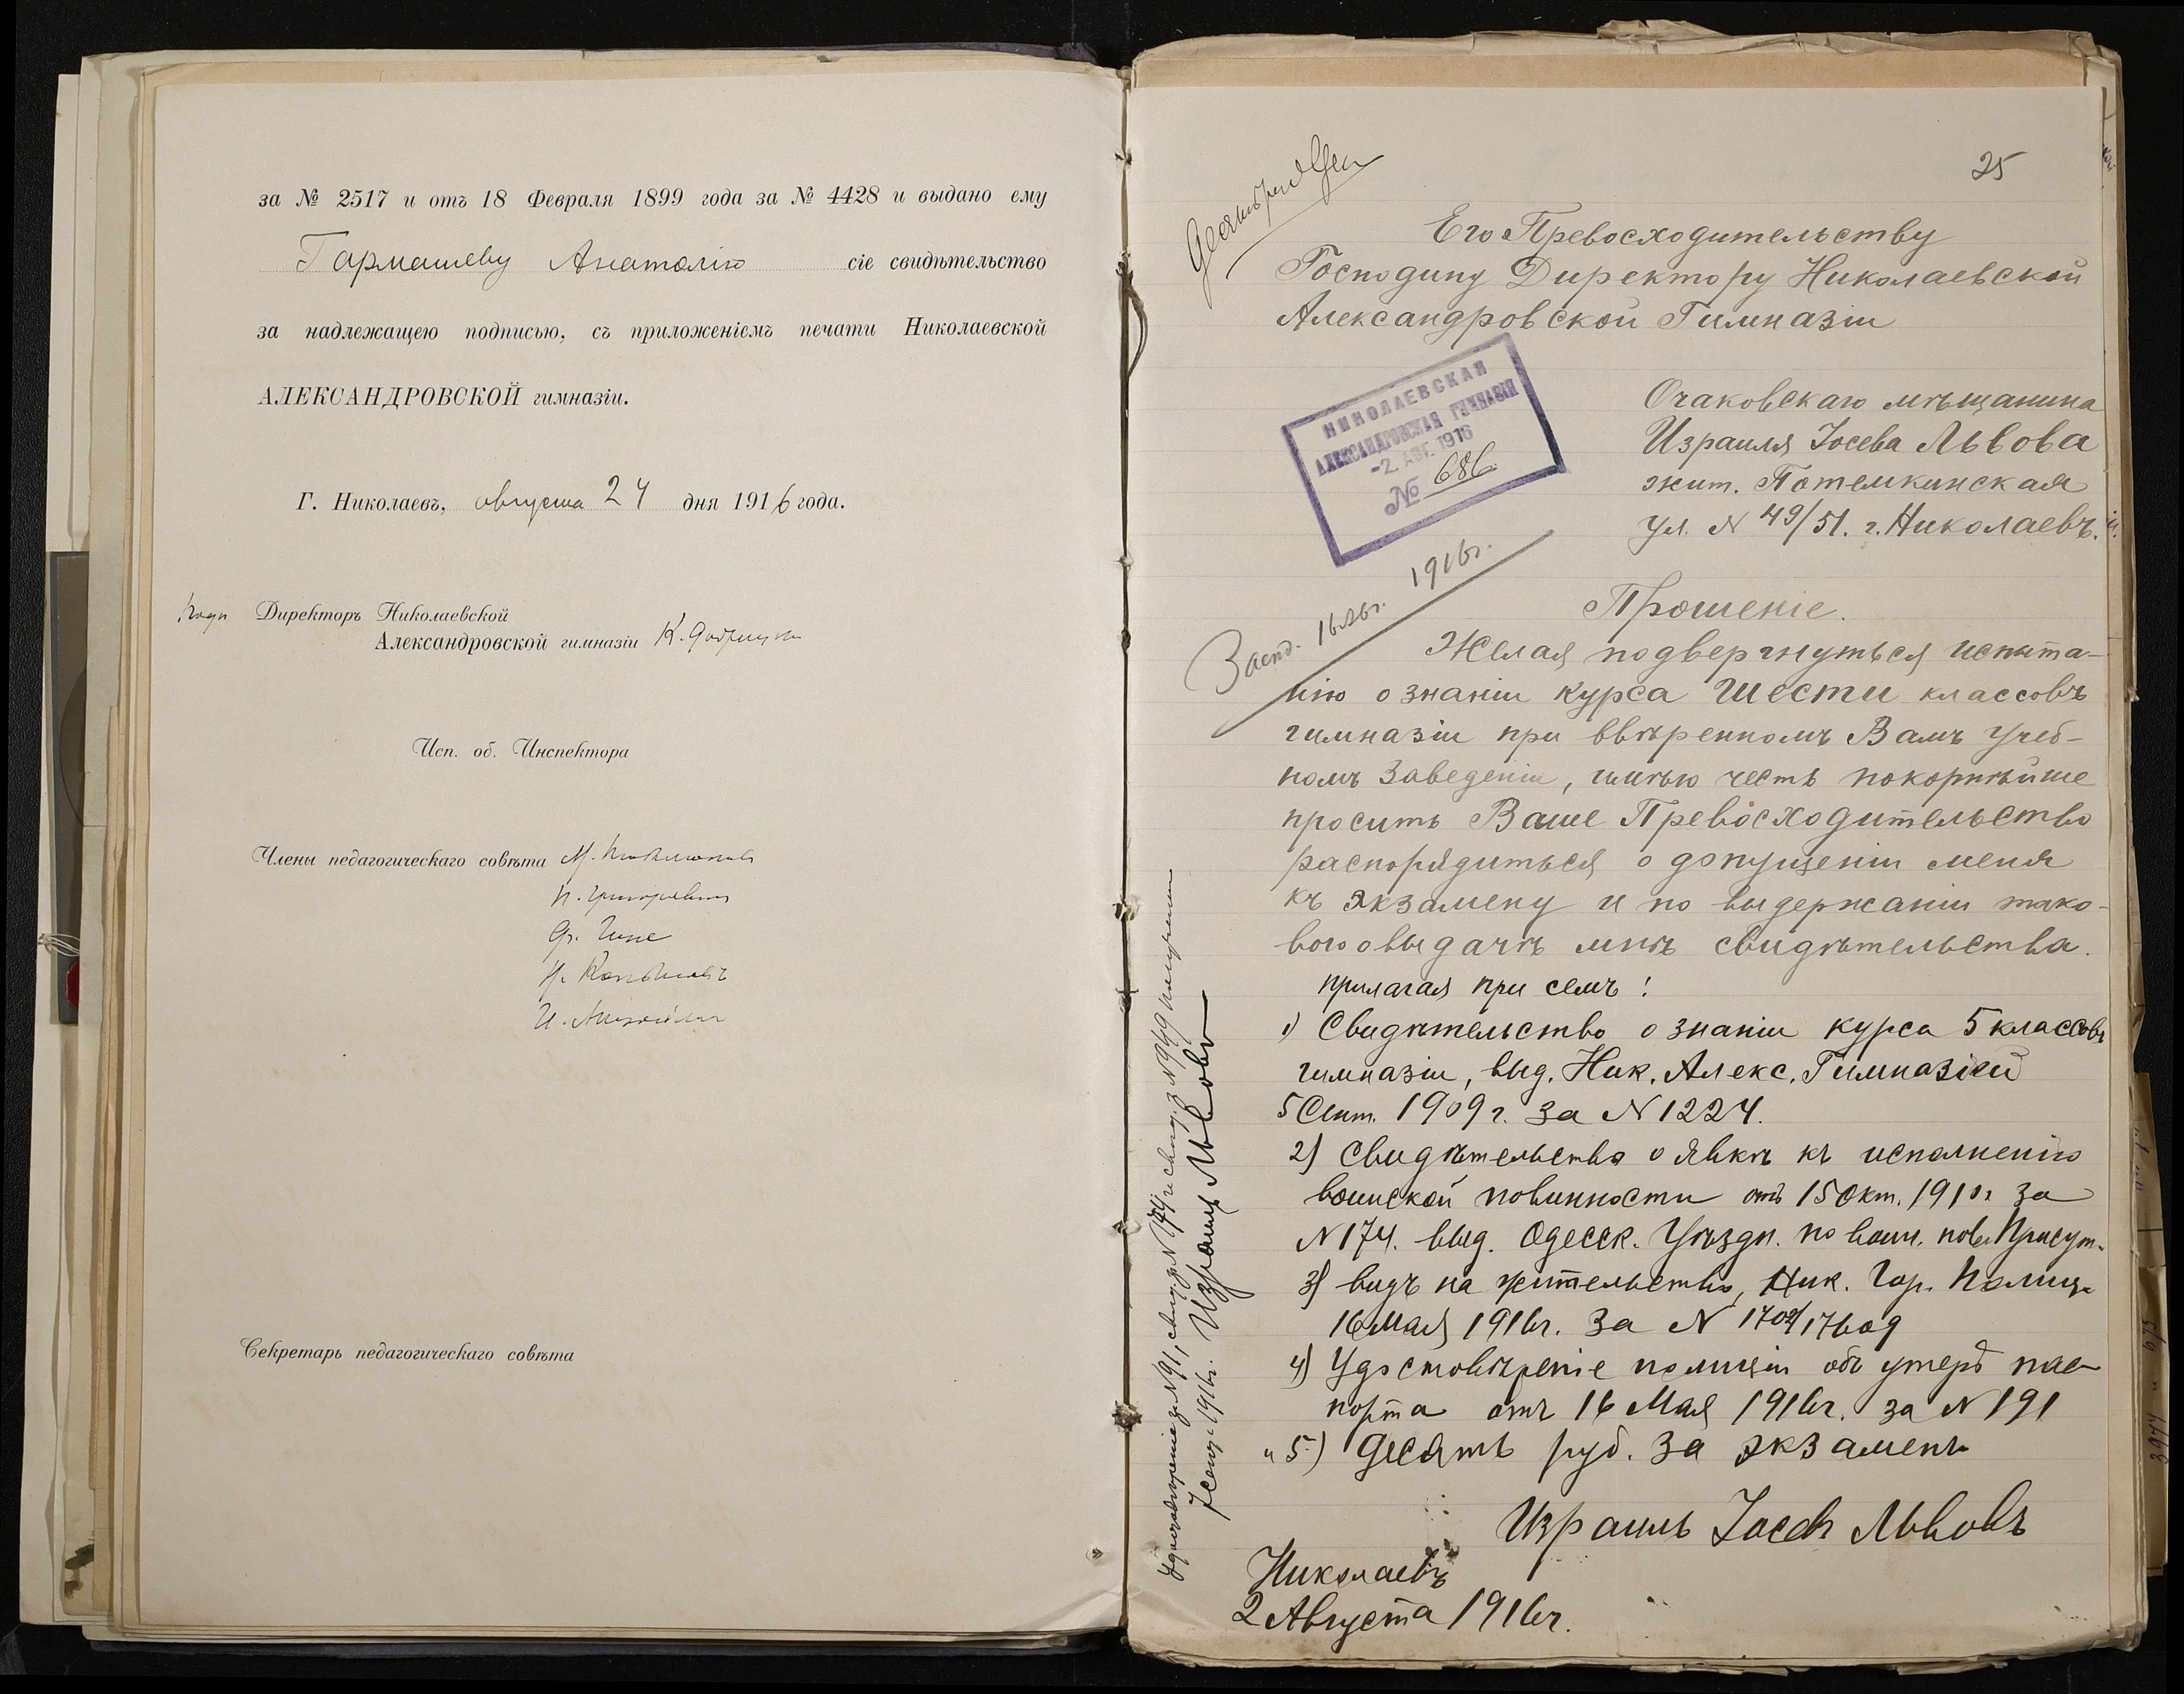 за № 2517 и отъ 18 Февраля 1899 года за № 4428 и выдано ему
Гармашеву Анатолію сіе свидѣтельство
за надлежащею подписью, съ приложеніемъ печати Николаевской
АЛЕКСАНДРОВСКОЙ гимназіи.
Г. Николаевъ, августа 24 дня 1916 года.
Директоръ Николаевской
Александровской гимназіи К.
Исп. об. Инспектора
Члены педагогическаго совѣта М.
Секретарь педагогическаго совѣта
25
Его Превосходительству
Господину Директору Николаевской
Александровской Гимназіи
НИКОЛАЕВСКАЯ
АЛЕКСАНДРОВСКАЯ ГИМНАЗІЯ
-2 АВГ. 1916
№ 686
Очаковскаго мѣщанина
Израиля Іосева Львова
жит. Потемкинская
ул. N 49/51. г. Николаевъ.
1916г.
Прошеніе.
Желая подвергнуться испыта-
нію о знаніи курса шести классовъ
гимназіи при ввѣренномъ Вамъ учеб-
номъ заведеніи, имѣю честь покорнѣйше
просить Ваше Превосходительство
распорядиться о допущеніи меня
къ экзамену и по выдержаніи тако-
вого о выдачѣ мнѣ свидѣтельства.
прилагая при семъ:
1) Свидѣтельство о знаніи курса 5 классовъ
гимназіи, выд. Ник. Алекс. Гимназіей
5 Сент. 1909 г. за N 1224.
2) Свидѣтельство о явкѣ къ исполненію
воинской повинности отъ 15 Окт. 1910г за
N 174. выд. Одесск. Уѣздн. по воин. пов. Присут.
3) видъ на жительство, Ник. Гор. Полиц.
16 Мая 1916г. за N
4) Удостовѣреніе полиціи объ утерѣ пас-
порта отъ 16 Мая 1916г. за N 191
и 5) Десять руб. за экзаменъ
Израиль Іосев Львовъ
Николаевъ
2 Августа 1916г.
1916г. Израиль Львовъ